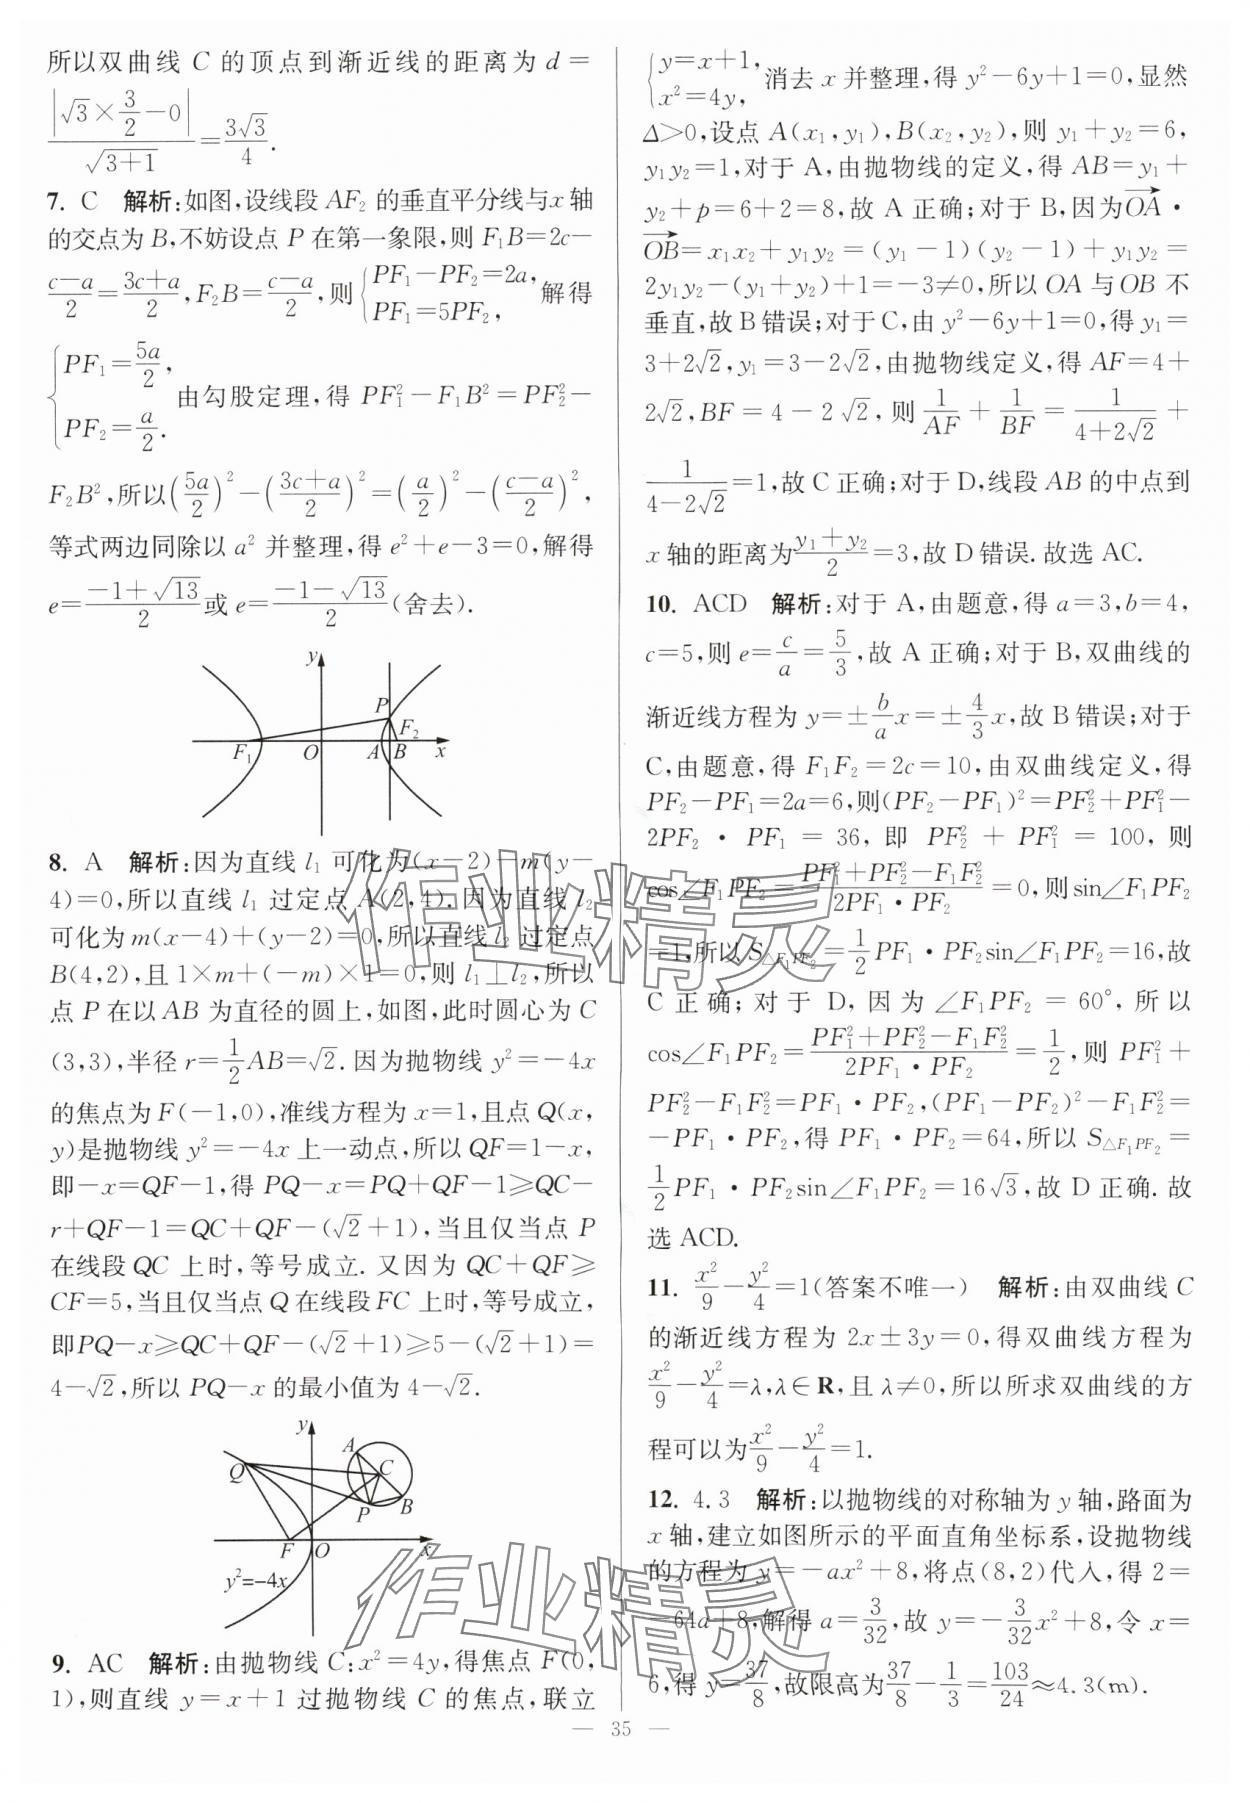 所以双曲线 C 的顶点到渐近线的距离为 d=
|√3×3/2−0|/√(3+1)=3√3/4.
7. C 解析:如图,设线段 AF₂ 的垂直平分线与x轴
的交点为 B,不妨设点 P 在第一象限,则 F₁B=2c−
(c−a)/2=(3c+a)/2,F₂B=(c−a)/2,则{PF₁−PF₂=2a, PF₁=5PF₂, 解得
{PF₁=5a/2, PF₂=a/2. 由勾股定理,得 PF₁²−F₁B²=PF₂²−
F₂B²,所以(5a/2)²−((3c+a)/2)²=(a/2)²−((c−a)/2)²,
等式两边同除以 a² 并整理,得 e²+e−3=0,解得
e=(−1+√13)/2或 e=(−1−√13)/2(舍去).
y
P
F₂
F₁ O A B x
8. A 解析:因为直线 l₁ 可化为(x−2)−m(y−
4)=0,所以直线 l₁ 过定点 A(2,4).因为直线 l₂
可化为 m(x−4)+(y−2)=0,所以直线 l₂ 过定点
B(4,2),且 1×m+(−m)×1=0,则 l₁⊥l₂,所以
点 P 在以 AB 为直径的圆上,如图,此时圆心为 C
(3,3),半径 r=1/2AB=√2.因为抛物线 y²=−4x
的焦点为 F(−1,0),准线方程为 x=1,且点 Q(x,
y)是抛物线 y²=−4x 上一动点,所以 QF=1−x,
即−x=QF−1,得 PQ−x=PQ+QF−1≥QC−
r+QF−1=QC+QF−(√2+1),当且仅当点 P
在线段 QC 上时,等号成立.又因为 QC+QF≥
CF=5,当且仅当点 Q 在线段 FC 上时,等号成立,
即PQ−x≥QC+QF−(√2+1)≥5−(√2+1)=
4−√2,所以 PQ−x 的最小值为 4−√2.
y
A
Q C
P B
F O x
y²=−4x
9. AC 解析:由抛物线 C:x²=4y,得焦点 F(0,
1),则直线 y=x+1 过抛物线 C 的焦点,联立
{y=x+1, x²=4y, 消去 x 并整理,得 y²−6y+1=0,显然
Δ>0,设点 A(x₁,y₁),B(x₂,y₂),则 y₁+y₂=6,
y₁y₂=1,对于 A,由抛物线的定义,得 AB=y₁+
y₂+p=6+2=8,故 A 正确;对于 B,因为OA→·
OB→=x₁x₂+y₁y₂=(y₁−1)(y₂−1)+y₁y₂=
2y₁y₂−(y₁+y₂)+1=−3≠0,所以 OA 与OB 不
垂直,故 B 错误;对于 C,由 y²−6y+1=0,得 y₁=
3+2√2,y₁=3−2√2,由抛物线定义,得 AF=4+
2√2,BF=4−2√2,则 1/AF+1/BF=1/(4+2√2)+
1/(4−2√2)=1,故 C 正确;对于 D,线段 AB 的中点到
x 轴的距离为(y₁+y₂)/2=3,故 D 错误.故选 AC.
10. ACD 解析:对于 A,由题意,得 a=3,b=4,
c=5,则 e=c/a=5/3,故 A 正确;对于 B,双曲线的
渐近线方程为 y=±b/a x=±4/3 x,故 B 错误;对于
C,由题意,得 F₁F₂=2c=10,由双曲线定义,得
PF₂−PF₁=2a=6,则(PF₂−PF₁)²=PF₂²+PF₁²−
2PF₂·PF₁=36,即 PF₂²+PF₁²=100,则
cos∠F₁PF₂=(PF₁²+PF₂²−F₁F₂²)/(2PF₁·PF₂)=0,则sin∠F₁PF₂
=1,所以 S△F₁PF₂=1/2PF₁·PF₂sin∠F₁PF₂=16,故
C 正确;对于 D,因为∠F₁PF₂=60°,所以
cos∠F₁PF₂=(PF₁²+PF₂²−F₁F₂²)/(2PF₁·PF₂)=1/2,则 PF₁²+
PF₂²−F₁F₂²=PF₁·PF₂,(PF₁−PF₂)²−F₁F₂²=
−PF₁·PF₂,得 PF₁·PF₂=64,所以 S△F₁PF₂=
1/2PF₁·PF₂sin∠F₁PF₂=16√3,故 D 正确.故
选 ACD.
11. x²/9−y²/4=1(答案不唯一) 解析:由双曲线 C
的渐近线方程为 2x±3y=0,得双曲线方程为
x²/9−y²/4=λ,λ∈R,且 λ≠0,所以所求双曲线的方
程可以为x²/9−y²/4=1.
12. 4.3 解析:以抛物线的对称轴为 y 轴,路面为
x 轴,建立如图所示的平面直角坐标系,设抛物线
的方程为 y=−ax²+8,将点(8,2)代入,得 2=
−64a+8,解得 a=3/32,故 y=−3/32x²+8,令 x=
6,得 y=37/8,故限高为37/8−1/3=103/24≈4.3(m).
— 35 —
作业精灵
作业精灵